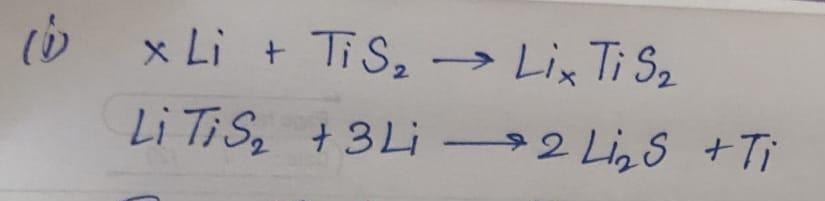 (i) x Li + TiS₂ → Liₓ TiS₂
LiTiS₂ + 3Li → 2 Li₂S + Ti